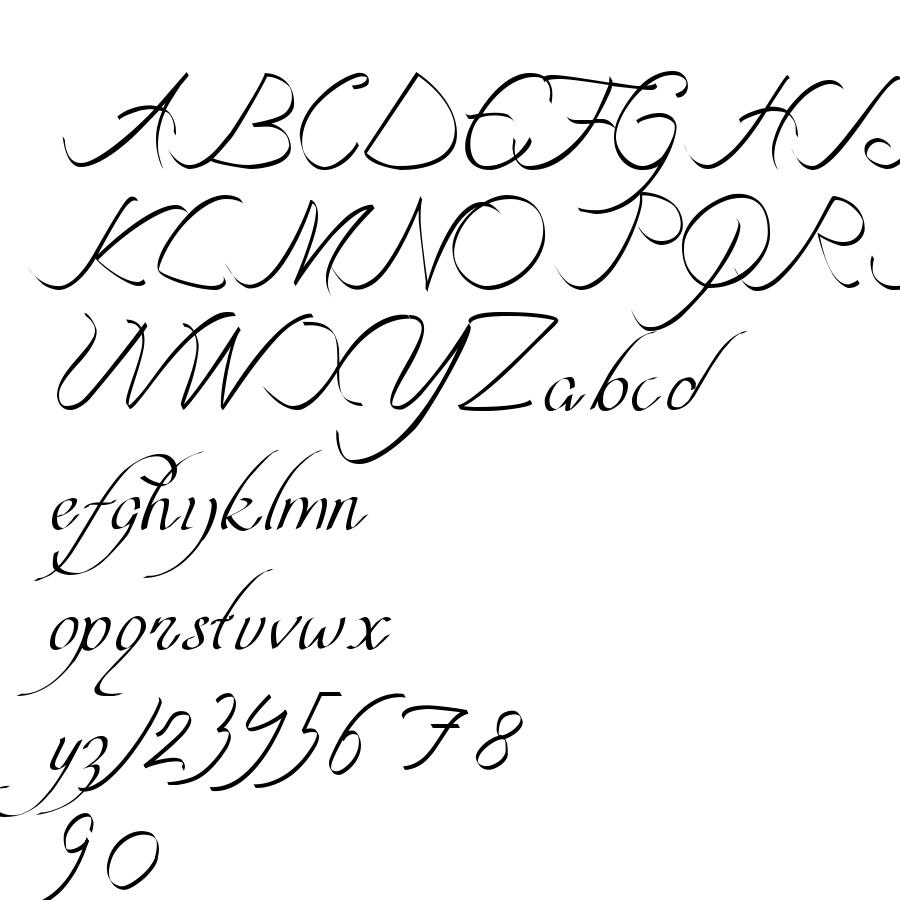 ABCDEFGHI
KLMNOPQR
UVWXYZabcd
efghijklmn
opqrstuvwx
yz12345678
90